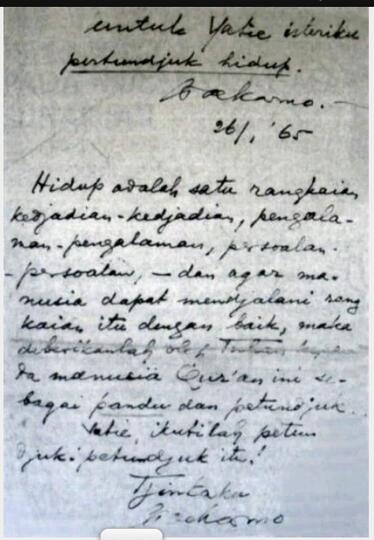 untuk Yatie isteriku
pertundjuk hidup.
Soekarno.–
26/1 '65
Hidup adalah satu rangkaian
kedjadian-kedjadian, pengala-
man-pengalaman, persoalan-
-persoalan, – dan agar ma-
nusia dapat mendjalani rang
kaian itu dengan baik, maka
diberikanlah oleh Tuhan kepa
da manusia Qur'an ini se-
bagai pandu dan petundjuk.
Yatie, ikutilah petun
djuk-petundjuk itu!
Tjintaku
Soekarno